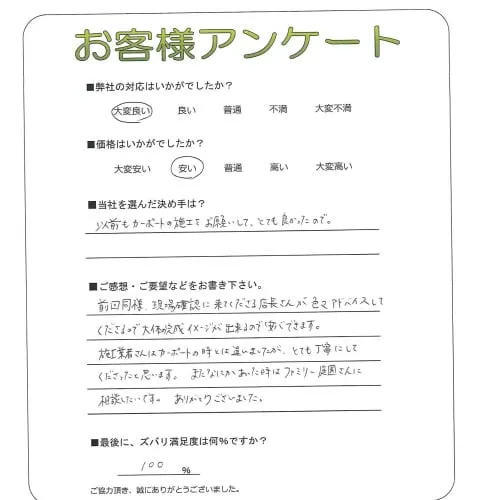 お客様アンケート
■弊社の対応はいかがでしたか?
大変良い 良い 普通 不満 大変不満
■価格はいかがでしたか?
大変安い 安い 普通 高い 大変高い
■当社を選んだ決め手は?
以前もカーポートの施工をお願いして、とても良かったので。
■ご感想・ご要望などをお書き下さい。
前回同様、現場確認に来てくださる店長さんが色々アドバイスして
くださるので大体完成イメージが出来るので安心できます。
施工業者さんはカーポートの時とは違いましたが、とても丁寧にして
くださったと思います。またなにかあった時はファミリー庭園さんに
相談したいです。ありがとうございました。
■最後に、ズバリ満足度は何%ですか?
100 %
ご協力頂き、誠にありがとうございました。